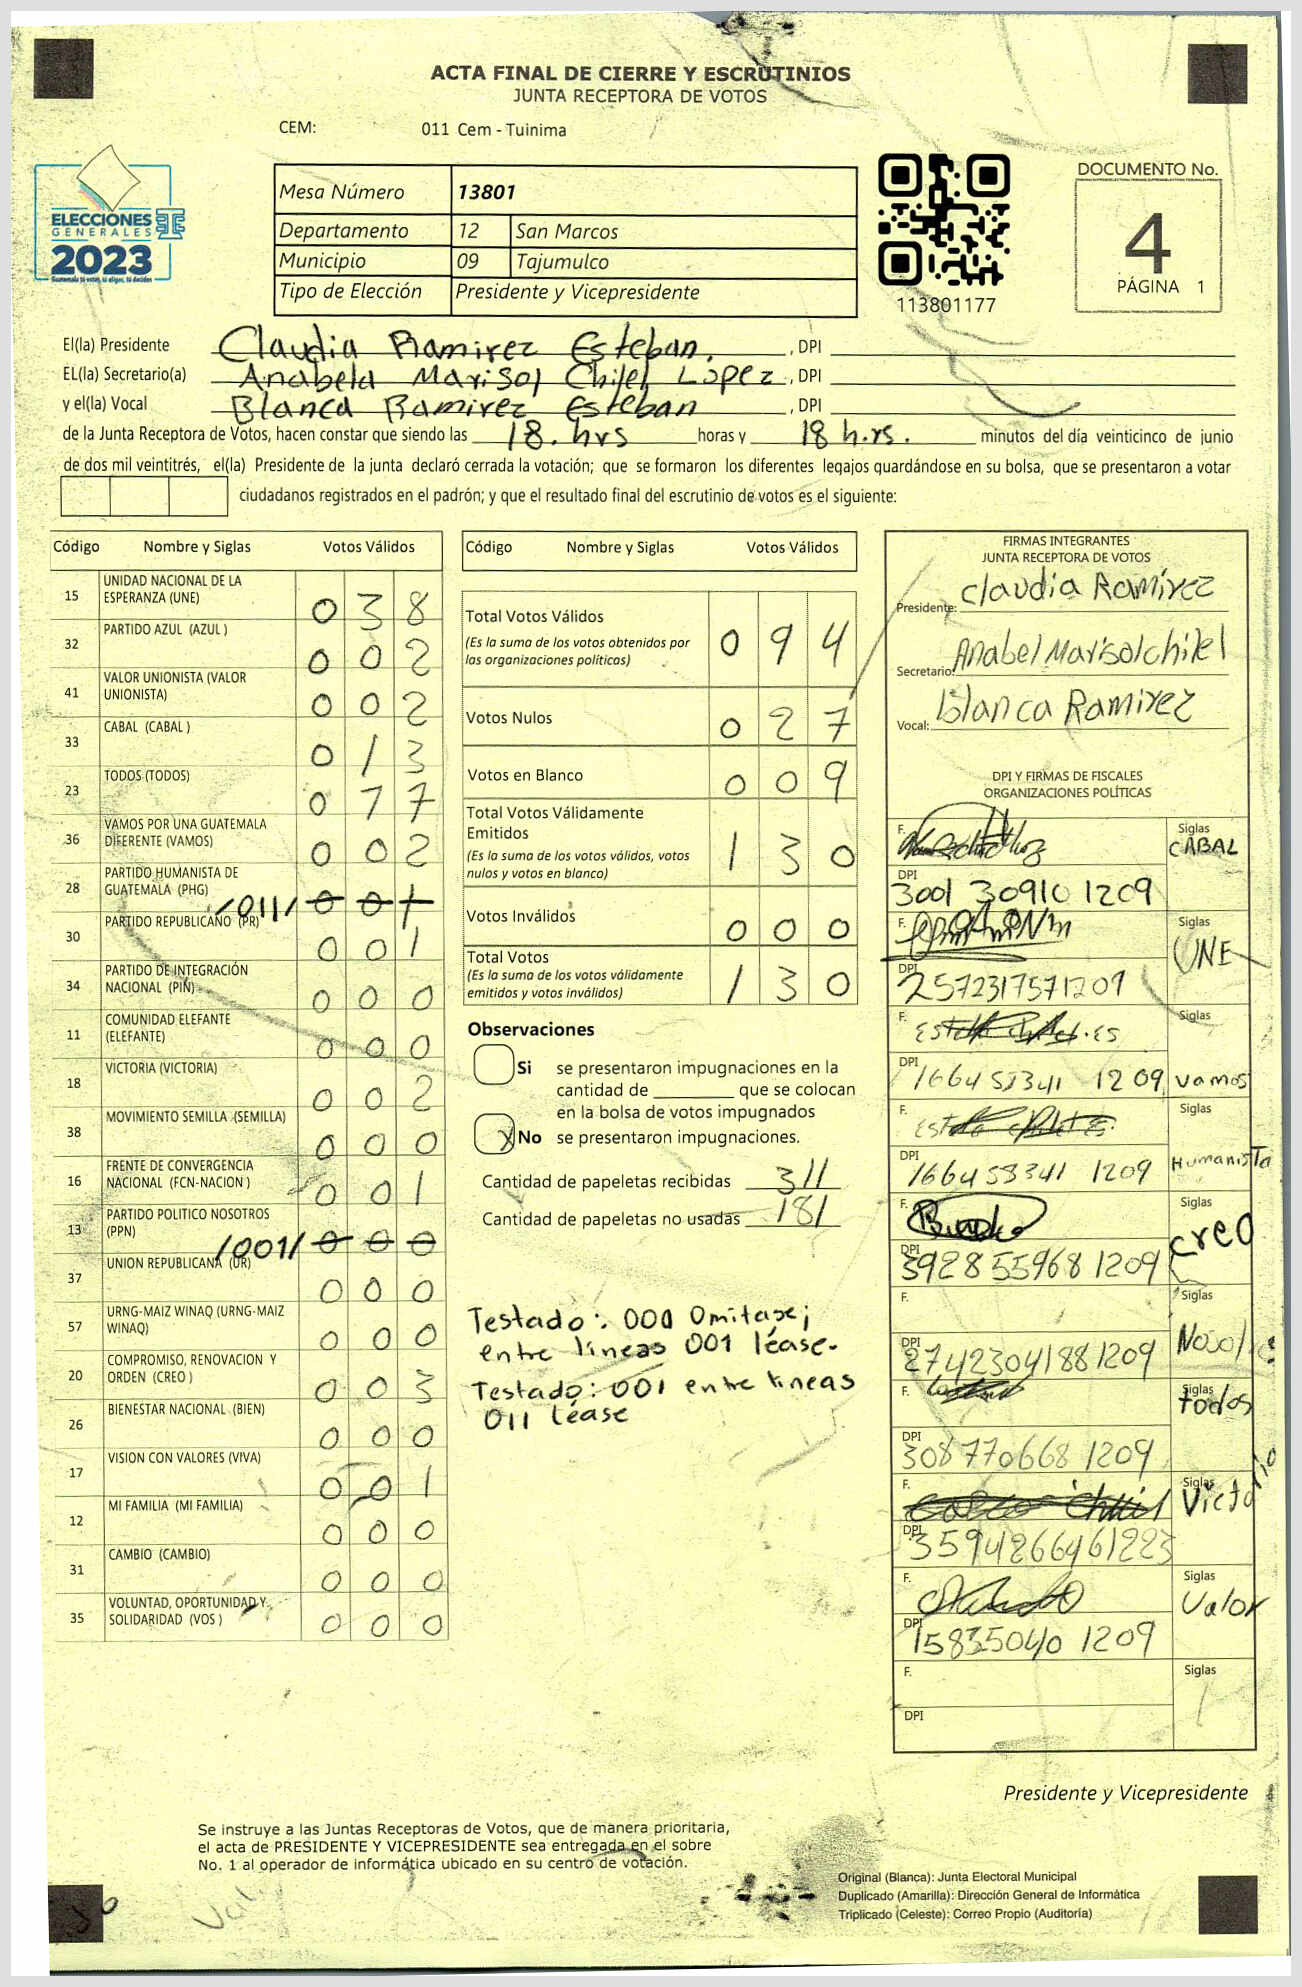 ACTA FINAL DE CIERRE Y ESCRUTINIOS
JUNTA RECEPTORA DE VOTOS
CEM: 011 Cem - Tuinima
ELECCIONES
GENERALES
2023
Mesa Número 13801
Departamento 12 San Marcos
Municipio 09 Tajumulco
Tipo de Elección Presidente y Vicepresidente
113801177
DOCUMENTO No.
4
PÁGINA 1
El(la) Presidente Claudia Ramirez Esteban. , DPI
EL(la) Secretario(a) Anabela Marisol Chilel Lopez , DPI
y el(la) Vocal Blanca Ramirez Esteban , DPI
de la Junta Receptora de Votos, hacen constar que siendo las 18. hrs horas y 18 h.rs. minutos del día veinticinco de junio
de dos mil veintitrés, el(la) Presidente de la junta declaró cerrada la votación; que se formaron los diferentes legajos quardándose en su bolsa, que se presentaron a votar
ciudadanos registrados en el padrón; y que el resultado final del escrutinio de votos es el siguiente:
Código Nombre y Siglas Votos Válidos
15 UNIDAD NACIONAL DE LA ESPERANZA (UNE) 0 3 8
32 PARTIDO AZUL (AZUL ) 0 0 2
41 VALOR UNIONISTA (VALOR UNIONISTA) 0 0 2
33 CABAL (CABAL ) 0 1 3
23 TODOS (TODOS) 0 7 7
36 VAMOS POR UNA GUATEMALA DIFERENTE (VAMOS) 0 0 2
28 PARTIDO HUMANISTA DE GUATEMALA (PHG) /011/ 0 0 1
30 PARTIDO REPUBLICANO (PR) 0 0 1
34 PARTIDO DE INTEGRACIÓN NACIONAL (PIN) 0 0 0
11 COMUNIDAD ELEFANTE (ELEFANTE) 0 0 0
18 VICTORIA (VICTORIA) 0 0 2
38 MOVIMIENTO SEMILLA (SEMILLA) 0 0 0
16 FRENTE DE CONVERGENCIA NACIONAL (FCN-NACION ) 0 0 1
13 PARTIDO POLITICO NOSOTROS (PPN) /001/ 0 0 0
37 UNION REPUBLICANA (UR) 0 0 0
57 URNG-MAIZ WINAQ (URNG-MAIZ WINAQ) 0 0 0
20 COMPROMISO, RENOVACION Y ORDEN (CREO ) 0 0 3
26 BIENESTAR NACIONAL (BIEN) 0 0 0
17 VISION CON VALORES (VIVA) 0 0 1
12 MI FAMILIA (MI FAMILIA) 0 0 0
31 CAMBIO (CAMBIO) 0 0 0
35 VOLUNTAD, OPORTUNIDAD Y SOLIDARIDAD (VOS ) 0 0 0
Código Nombre y Siglas Votos Válidos
Total Votos Válidos 0 9 4
(Es la suma de los votos obtenidos por
las organizaciones políticas)
Votos Nulos 0 2 7
Votos en Blanco 0 0 9
Total Votos Válidamente
Emitidos 1 3 0
(Es la suma de los votos válidos, votos
nulos y votos en blanco)
Votos Inválidos 0 0 0
Total Votos 1 3 0
(Es la suma de los votos válidamente
emitidos y votos inválidos)
Observaciones
Si se presentaron impugnaciones en la
cantidad de que se colocan
en la bolsa de votos impugnados
X No se presentaron impugnaciones.
Cantidad de papeletas recibidas 311
Cantidad de papeletas no usadas 181
Testado: 000 Omitase;
entre lineas 001 léase.
Testado: 001 entre lineas
011 léase
FIRMAS INTEGRANTES
JUNTA RECEPTORA DE VOTOS
Presidente: Claudia Ramírez
Secretario: Anabel Marisol chilel
Vocal: Blanca Ramirez
DPI Y FIRMAS DE FISCALES
ORGANIZACIONES POLÍTICAS
F. Siglas CABAL
DPI 3001 30910 1209
F. Siglas UNE
DPI 2572317571209
F. Siglas
DPI 166453341 1209 vamos
F. Siglas
DPI 166453341 1209 Humanista
F. Siglas creo
DPI 3928559681209
F. Siglas
DPI 2742304188 1209
F. Siglas todos
DPI 308770668 1209
F. Siglas Victoria
DPI 3594266461223
F. Siglas Valor
DPI 15835040 1209
F. Siglas
DPI
Presidente y Vicepresidente
Se instruye a las Juntas Receptoras de Votos, que de manera prioritaria,
el acta de PRESIDENTE Y VICEPRESIDENTE sea entregada en el sobre
No. 1 al operador de informática ubicado en su centro de votación.
Original (Blanca): Junta Electoral Municipal
Duplicado (Amarilla): Dirección General de Informática
Triplicado (Celeste): Correo Propio (Auditoría)